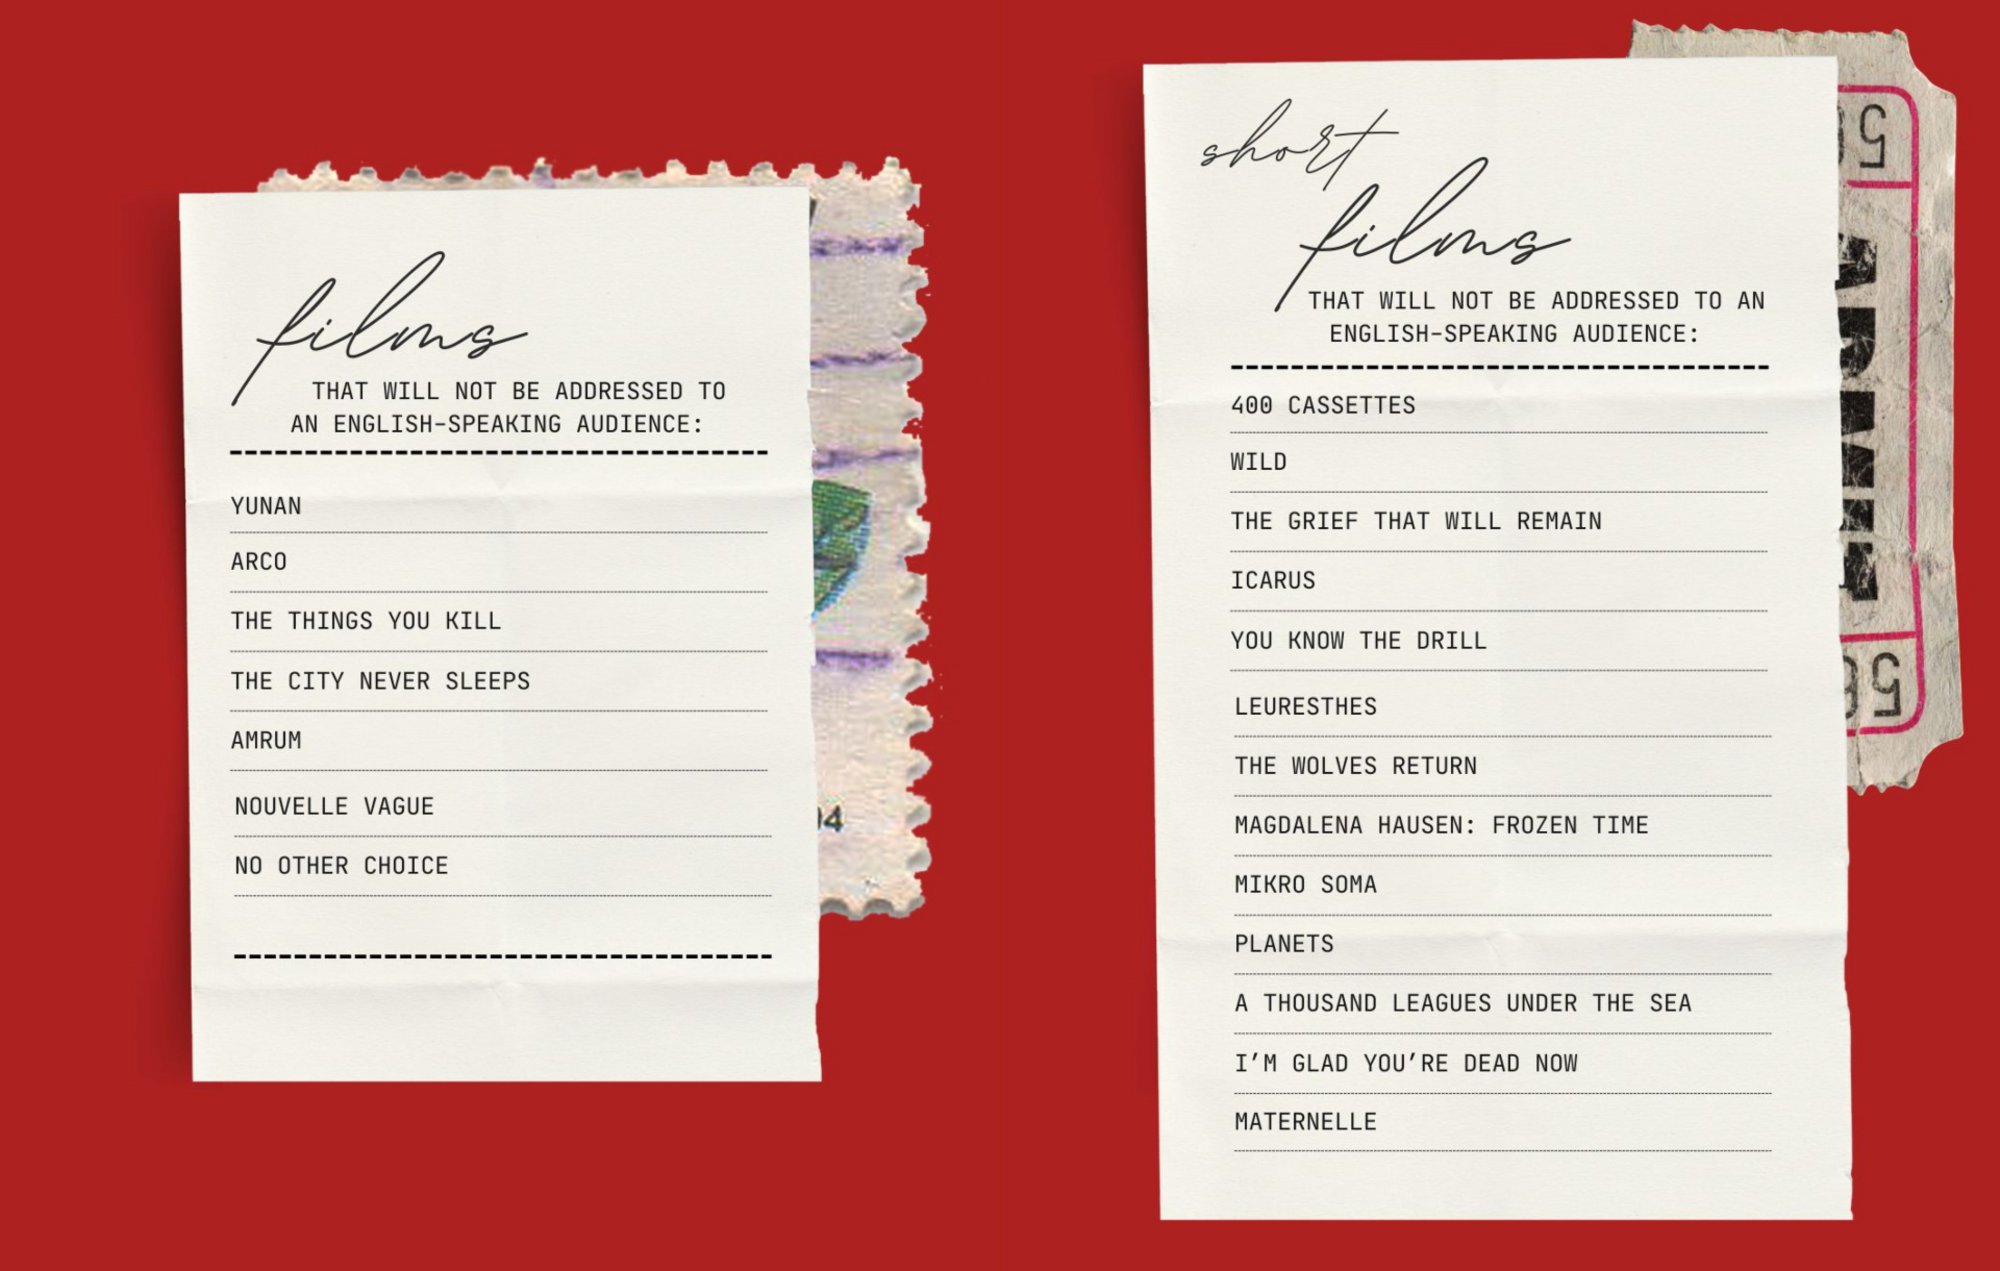 films
THAT WILL NOT BE ADDRESSED TO
AN ENGLISH-SPEAKING AUDIENCE:
YUNAN
ARCO
THE THINGS YOU KILL
THE CITY NEVER SLEEPS
AMRUM
NOUVELLE VAGUE
NO OTHER CHOICE
04
short
films
THAT WILL NOT BE ADDRESSED TO AN
ENGLISH-SPEAKING AUDIENCE:
400 CASSETTES
WILD
THE GRIEF THAT WILL REMAIN
ICARUS
YOU KNOW THE DRILL
LEURESTHES
THE WOLVES RETURN
MAGDALENA HAUSEN: FROZEN TIME
MIKRO SOMA
PLANETS
A THOUSAND LEAGUES UNDER THE SEA
I'M GLAD YOU'RE DEAD NOW
MATERNELLE
56
ADMIT
56